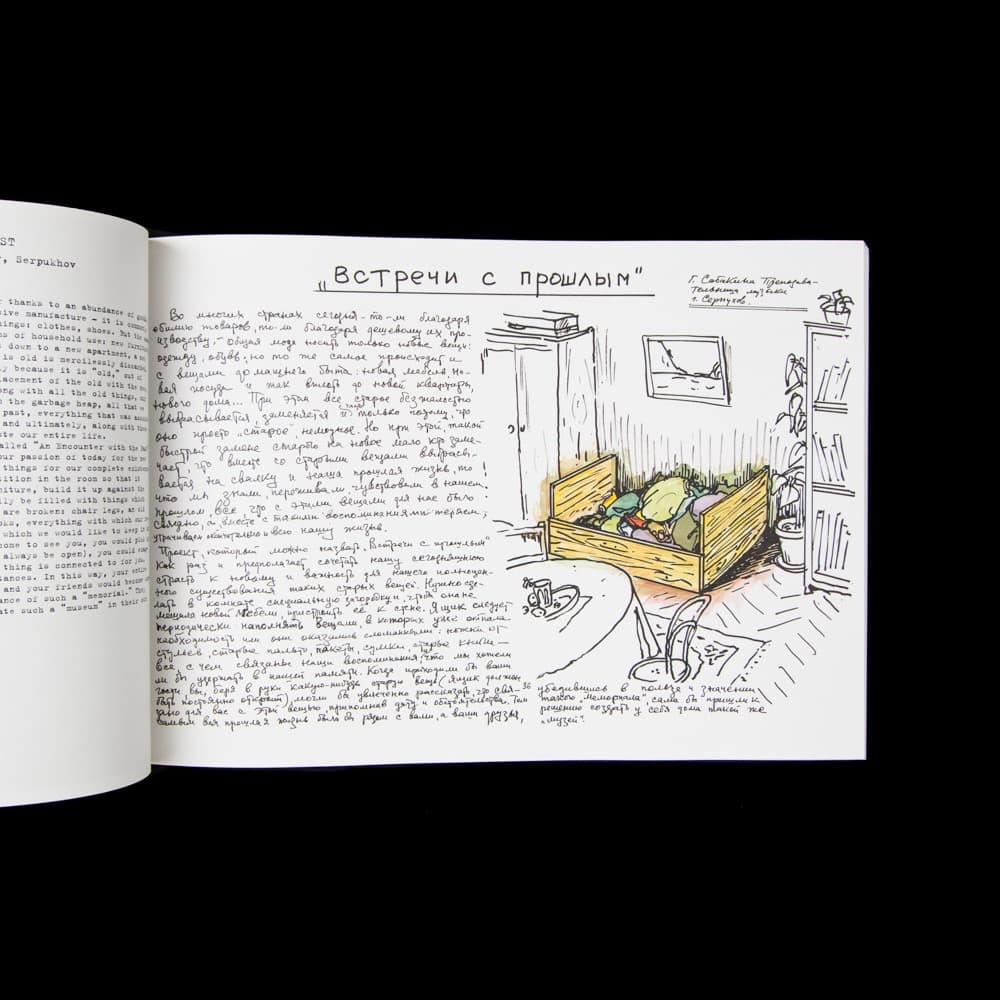 ST
, Serpukhov
r thanks to an abundance of goods,
sive manufacture - it is common
hings: clothes, shoes. But the
s of household use: new furniture
down to a new apartment, a new
is old is mercilessly discarded,
y because it is "old," out of
lacement of the old with the new
ong with all the old things, our
the garbage heap, all that we
past, everything that was
and ultimately, along with these
te our entire life.
alled "An Encounter with the Past"
our passion of today for the new
things for our complete existence
ition in the room so that is
niture, build it up against the
ly be filled with things which
are broken: chair legs, an old
oks, everything with which our
which we would like to keep in
come to see you, you could pick
always be open), you could
thing is connected to for you,
tances. In this way, your entire
and your friends would become
ance of such a "memorial." They
ate such a "museum" in their
„Встречи с прошлым"
Г. Собакина Преподава-
тельница музыки
г. Серпухов.
Во многих странах сегодня - то-ли благодаря
обилию товаров, то-ли благодаря дешевому их про-
изводству, - общая мода носить только новые вещи:
одежду, обувь. но то же самое происходит и
с вещами домашнего быта: новая мебель, но-
вая посуда и так вплоть до новой квартиры,
нового дома... При этом все старое безжалостно
выбрасывается, заменяется и только потому, что
оно просто „старое" немодное. Но при этой, такой
быстрой замене старого на новое мало кто заме-
чает, что вместе со старыми вещами выбрасы-
вается на свалку и наша прошлая жизнь, то
что мы знали, переживали чувствовали в нашем
прошлом, все, что с этими вещами для нас было
связано, и вместе с такими воспоминаниями теряем,
утрачиваем окончательно всю нашу жизнь.
Проект, который можно назвать „Встречи с прошлым"
как раз и предполагает сочетать нашу сегодняшнюю
страсть к новому и важность для нашего полноцен-
ного существования таких старых вещей. Нужно сде-
лать в комнате специальную загородку, чтоб она не
мешала новой мебели, пристроить её к стене. Ящик следует
периодически наполнять вещами, в которых уже отпала
необходимость или они оказались сломанными: ножки от
стульев, старое пальто, пакеты, сумки, старые книги —
все с чем связаны наши воспоминания, что мы хотели
бы удержать в нашей памяти. Когда приходили бы ваши
гости вы, беря в руки какую-нибудь старую вещь (ящик должен
быть постоянно открыт) могли бы увлеченно рассказать, что свя-
зано для вас с этой вещью, припоминая дату и обстоятельства. Тем
самым вся прошлая жизнь была бы рядом с вами, а ваши друзья,
36
убедившись в пользе и значении
такого „мемориала", сами бы пришли к
решению создать у себя дома такой же
„музей".